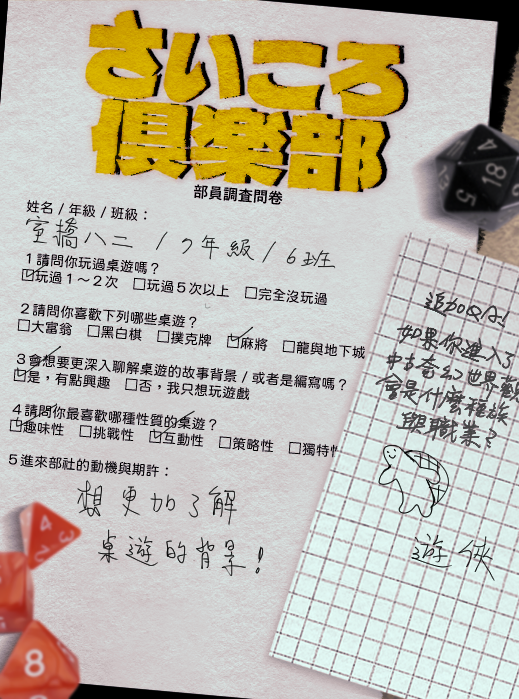 さいころ
倶楽部
部員調查問卷
姓名 / 年級 / 班級：
室橋八二 / 7年級 / 6班
1 請問你玩過桌遊嗎？
☑玩過１～２次 □玩過５次以上 □完全沒玩過
2 請問你喜歡下列哪些桌遊？
□大富翁 □黑白棋 □撲克牌 ☑麻將 □龍與地下城
3 會想要更深入聊解桌遊的故事背景 / 或者是編寫嗎？
☑是，有點興趣 □否，我只想玩遊戲
4 請問你最喜歡哪種性質的桌遊？
☑趣味性 □挑戰性 ☑互動性 □策略性 □獨特性
5 進來部社的動機與期許：
想更加了解
桌遊的背景！
追加Q A！
如果你進入了
中古奇幻世界
會是什麼種族
跟職業？
遊俠
4
18
5
4
2
3
8